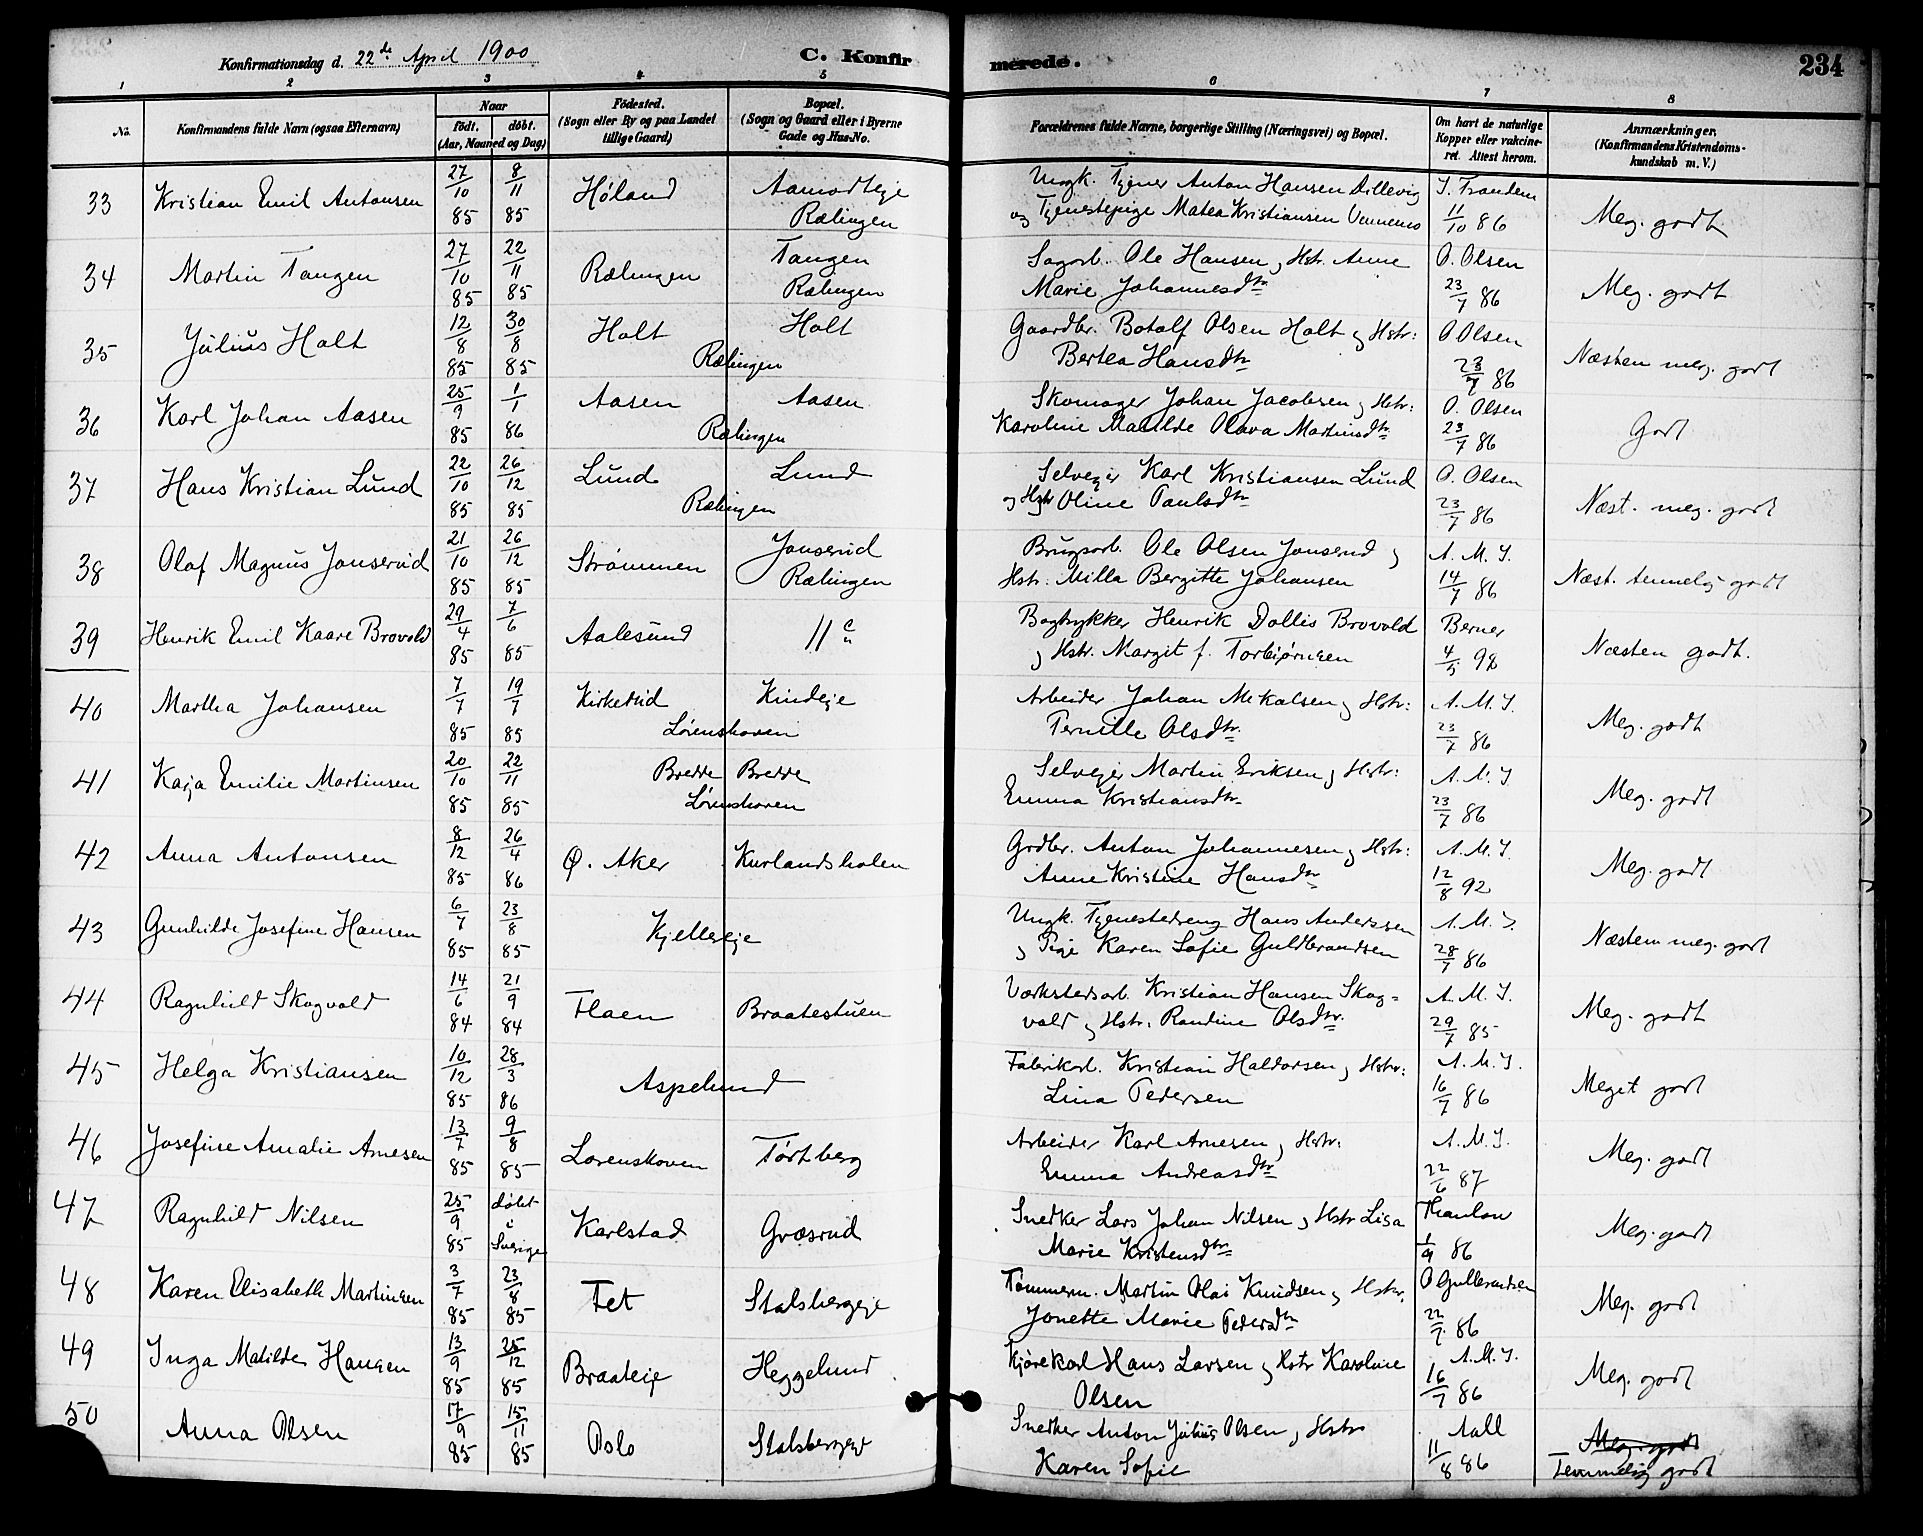 Konfirmationsdag d. 22de April 1900
C. Konfirmerede.
234
1 2 3 4 5 6 7 8
No.
Konfirmandens fulde Navn (ogsaa Efternavn)
Naar
født. døbt.
(Aar, Maaned og Dag)
Fødested.
(Sogn eller By og paa Landet
tillige Gaard)
Bopæl.
(Sogn og Gaard eller i Byerne
Gade og Hus-No.
Forældrenes fulde Navne, borgerlige Stilling (Næringsvei) og Bopæl.
Om havt de naturlige
Kopper eller vakcine-
ret. Attest herom.
Anmærkninger.
(Konfirmandens Kristendoms-
kundskab m. V.)
33 Kristian Emil Antonsen 27/10 85 8/11 85 Høland Aamodteje Rælingen
Ungk. Tjener Anton Hansen Dillevig
og Tjenestepige Matea Kristiansen Vennenes
J. Frandem 11/10 86 Meg. godt
34 Martin Tangen 27/10 85 22/11 85 Rælingen Tangen Rælingen
Sagarb. Ole Hansen og Hstr. Anne
Marie Johannesdtr
O. Olsen 23/7 86 Meg. godt
35 Julius Holt 12/8 85 30/8 85 Holt Holt Rælingen
Gaardbr. Botolf Olsen Holt og Hstr:
Bertea Hansdtr
O Olsen 23/7 86 Næsten meg. godt
36 Karl Johan Aasen 25/9 85 1/1 86 Aasen Aasen Rælingen
Skomager Johan Jacobsen og Hstr:
Karoline Matilde Olava Martinsdtr
O. Olsen 23/7 86 Godt
37 Hans Kristian Lund 22/10 85 26/12 85 Lund Lund Rælingen
Selvejer Karl Kristiansen Lund
og Hstr Oline Paulsdtr
O. Olsen 23/7 86 Næst. meg. godt
38 Olaf Magnus Jonserud 21/10 85 26/12 85 Strømmen Jonserud Rælingen
Brugsarb. Ole Olsen Jonserud og
Hstr: Milla Bergitte Johansen
A. M. J. 14/7 86 Næst. temmelig godt
39 Henrik Emil Kaare Brovold 29/4 85 7/6 85 Aalesund 11 c
Bogtrykker Henrik Dollis Brovold
og Hstr. Margit f. Torbjørnsen
Berner 4/5 92 Næsten godt.
40 Martha Johansen 7/7 85 19/7 85 Kirkerud Kindeje Lørenskoven
Arbeider Johan Mekalsen og Hstr:
Pernille Olsdtr.
A. M. J. 23/7 86 Meg. godt
41 Kaja Emilie Martinsen 20/10 85 22/11 85 Bredde Bredde Lørenskoven
Selvejer Martin Eriksen og Hstr:
Emma Kristiansdtr
A. M. J 23/7 86 Meg. godt
42 Anna Antonsen 8/12 85 26/4 86 Ø. Aker Kurlandsholen
Grdbr. Anton Johannesen og Hstr:
Anne Kristine Hansdtr
A. M. J. 12/8 92 Meg. godt
43 Gunhilde Josefine Hansen 6/7 85 23/8 85 Kjelleseje
Ungk. Tjenestedreng Hans Anderssen
og Pige Karen Sofie Guldbrandsen
A. M. J. 28/7 86 Næsten meg. godt
44 Ragnhild Skogvold 14/6 84 21/9 84 Flaen Braatestuen
Værkstedsarb. Kristian Hansen Skog-
vold og Hstr: Randine Olsdtr.
A. M. J. 29/7 85 Meg. godt
45 Helga Kristiansen 10/12 85 28/3 86 Aspelund
Fabrikarb. Kristian Haldorsen og Hstr:
Lina Pedersen
A. M. J. 16/7 86 Meget godt
46 Josefine Amalie Arnesen 13/7 85 9/8 85 Lørenskoven Tørtberg
Arbeider Karl Arnesen og Hstr:
Emma Andreasdtr
A. M. J. 22/6 87 Meg. godt
47 Ragnhild Nilsen 25/9 85 døbt i Sverige Karlstad Græsrud
Snedker Lars Johan Nilsen og Hstr Lisa
Marie Kristensdtr
Thaulow 1/9 86 Meg. godt
48 Karen Elisabeth Martinsen 3/7 85 23/8 85 Fet Stalsbergeje
Tømmerm. Martin Olai Knudsen og Hstr.
Jonette Marie Pedersdtr
O Gulbrandsen 22/7 86 Meg. godt
49 Inga Matilde Hansen 13/9 85 25/12 85 Braateje Heggelund
Kjørekarl Hans Larsen og Hstr Karoline
Olsen
A. M. J. 16/7 86 Meg. godt
50 Anna Olsen 17/9 85 15/11 85 Oslo Stalsbergeje
Snedker Anton Julius Olsen og Hstr
Karen Sofie
Aall 11/8 86 Meg. godt
Temmelig godt